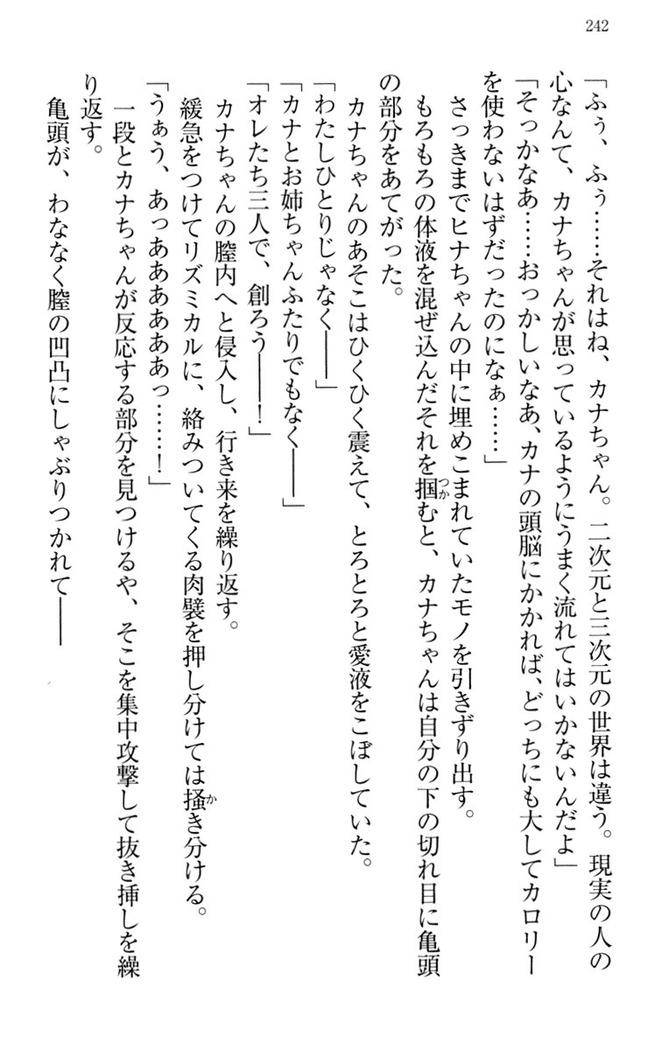 242
「ふぅ、ふぅ……それはね、カナちゃん。二次元と三次元の世界は違う。現実の人の
心なんて、カナちゃんが思っているようにうまく流れてはいかないんだよ」
「そっかなあ……おっかしいなあ、カナの頭脳にかかれば、どっちにも大してカロリー
を使わないはずだったのになぁ……」
さっきまでヒナちゃんの中に埋めこまれていたモノを引きずり出す。
もろもろの体液を混ぜ込んだそれを掴つかむと、カナちゃんは自分の下の切れ目に亀頭
の部分をあてがった。
カナちゃんのあそこはひくひく震えて、とろとろと愛液をこぼしていた。
「わたしひとりじゃなく――」
「カナとお姉ちゃんふたりでもなく――」
「オレたち三人で、創ろう――！」
カナちゃんの膣内へと侵入し、行き来を繰り返す。
緩急をつけてリズミカルに、絡みついてくる肉襞を押し分けては掻かき分ける。
「うぁう、あっああああああっ……！」
一段とカナちゃんが反応する部分を見つけるや、そこを集中攻撃して抜き挿しを繰
り返す。
亀頭が、わななく膣の凹凸にしゃぶりつかれて――